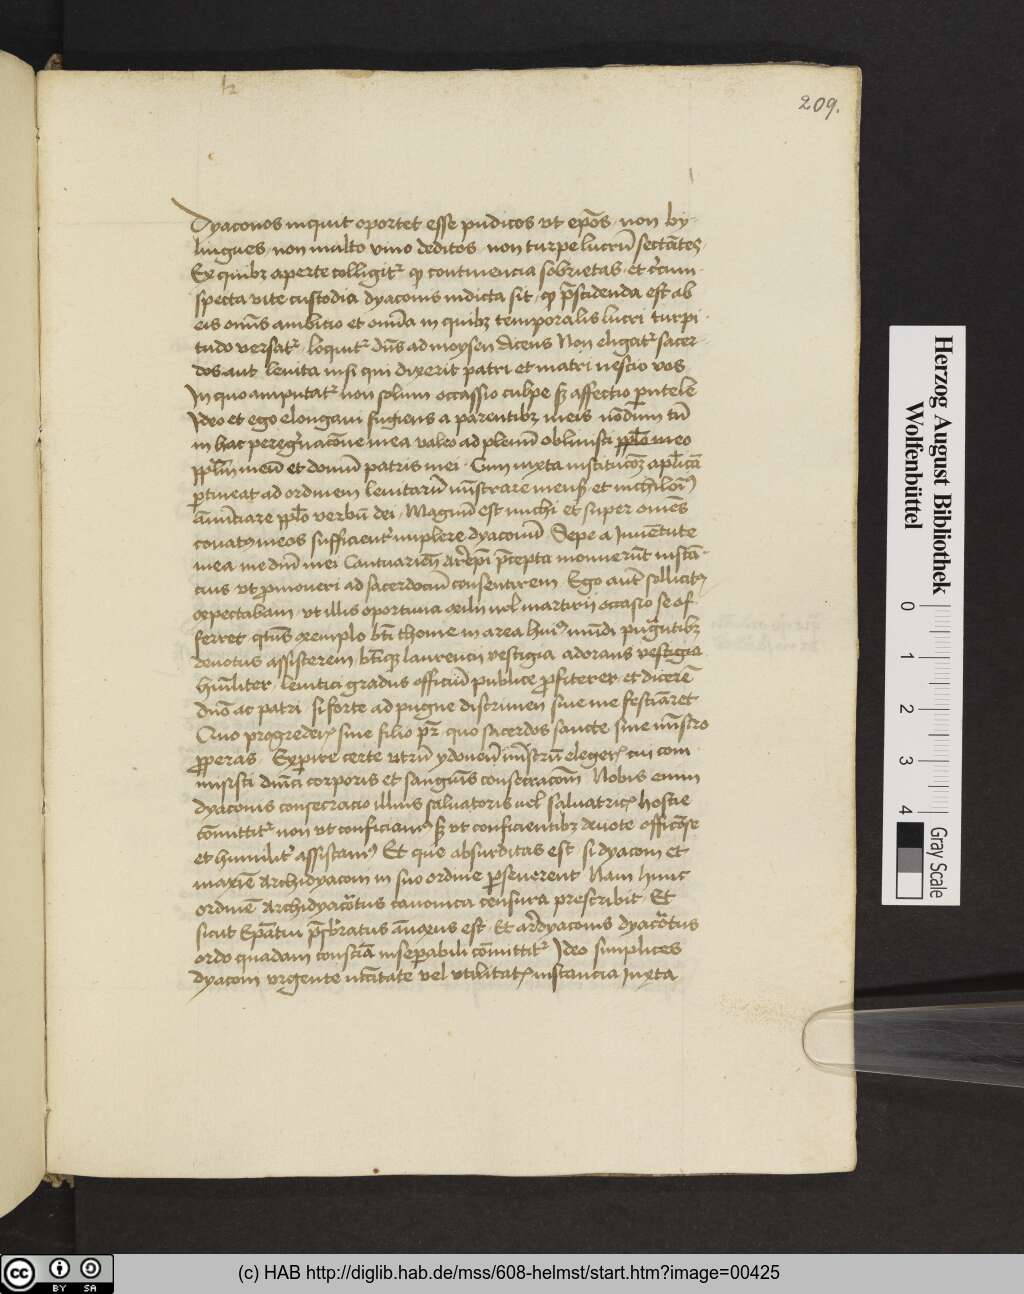 209.
Dyaconos inquit oportet esse pudicos vt ep̄os non by
lingues non multo vino deditos non turpe lucrū sectātes
Ex quibꝫ aperte colligitᵣ ꝙ continencia sobrietas et c̄rcum
specta vite custodia dyaconis indicta sit ꝙ p̄scidenda est ab
eis om̄s ambicio et om̄ia in quibꝫ temporalis lucri turpi
tudo versatᵣ loquitᵣ dn̄s ad moysen dicens Non eligatᵣ sacer
dos aut leuita nisi qui dixerit patri et matri nescio vos
In quo amputatᵣ non solum occassio culpe sꝫ affectio parentele
Ideo et ego elongaui fugiens a parentibꝫ meis nōdum tn̄
in hac peregrinacōne mea valeo ad plenū obliuisci pp̄lo meo
pp̄lm meū et domū patris mei Cum iuxta institucōꝫ apl̄icā
ꝑtineat ad ordinem leuitarū mīstrare mensꝫ et
ānūciare pp̄lo verbū dei Magnū est michi et super om̄es
conatꝰ meos sufficientᵣ implere dyaconū Sepe a Iuuētute
mea me dūi mei Cantuarieñ Ar̄epi p̄cepta monuerūt instā
cius vt ꝓmoueri ad sacerdociū consentirem Ego autē sollicitꝰ
expectabam vt illis oportuna exilii uel martirii occasio se of
ferret qt̄ns exemplo bt̄i thome in area huiꝰ mūdi pugnātibꝫ
deuotus assisterem bt̄iqꝫ laurencii vestigia adorans vestigia
hūiliter leuitici gradus officiū publice ꝓfiterer et dicerē
dn̄o ac patri si forte ad pugne discrimen sine me festināret
Quo progrederꝭ sine filio pr̄ quo sacerdos sancte sine mīstro
ꝓperas Experire certe utrū ydoneū mīstrū elegerꝭ cui com
misisti dn̄ici corporis et sangūis consecracōem Nobis enim
dyaconis consecracio illius saluatoris uel saluatricꝭ hostie
cōmittitᵣ non vt conficiamꝰ sꝫ vt conficientibꝫ deuote officōse
et humilitᵣ assistamꝰ Et que absurditas est si dyaconi et
maxīe Archidyaconi in suo ordine ꝑseuerent Nam hunc
ordinē Archidyacōtus canonica censura prescribit Et
sicut Ep̄atui p̄sbratus ānexus est Et ar̄dyaconis dyacōtus
ordo quadam consc̄ia inseparabili cōmittitᵣ Ideo simplices
dyaconi vrgente nc̄itate vel vtilitatꝭ instancia Iuxta
Herzog August Bibliothek
Wolfenbüttel
0 1 2 3 4
Gray Scale
cc BY SA
(c) HAB http://diglib.hab.de/mss/608-helmst/start.htm?image=00425